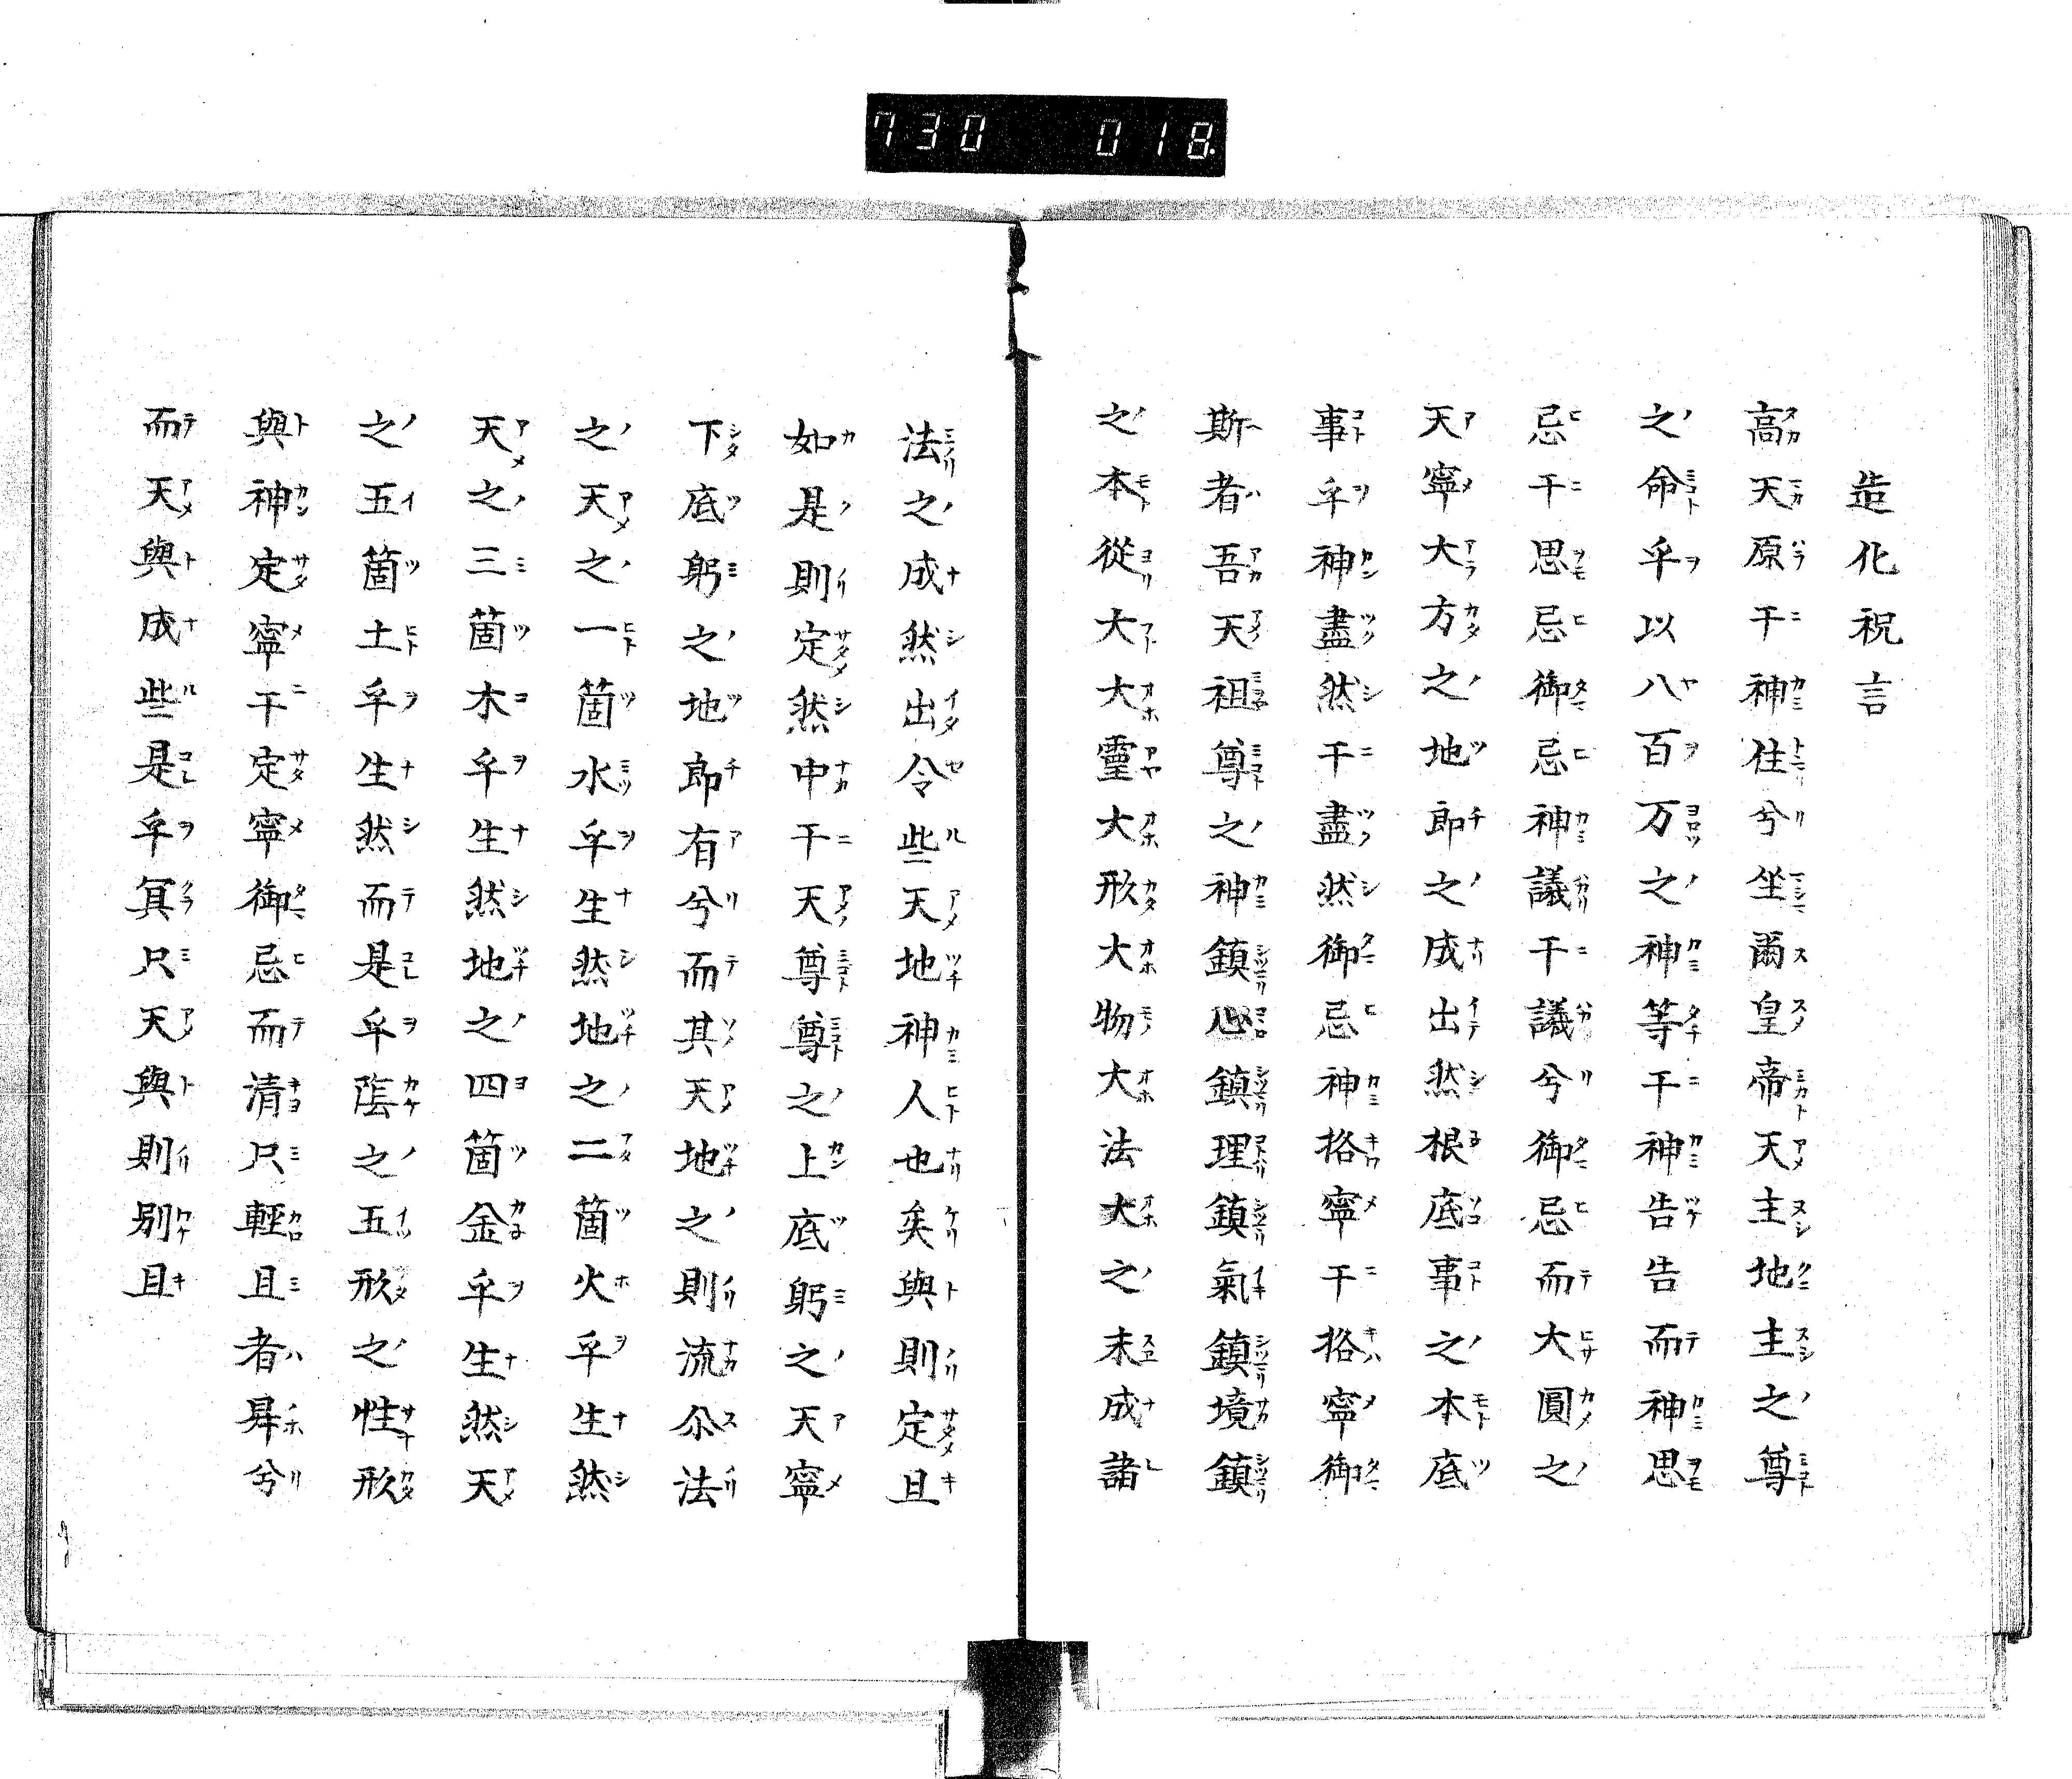 730 018.
造化祝言
高天原干神住兮坐爾皇帝天主地主之尊
之命乎以八百万之神等干神告告而神思
忌干思忌御忌神議干議兮御忌而大圓之
天寧大方之地即之成出然根底事之本底
事乎神盡然干盡然御忌神格寧干格寧御
斯者吾天祖尊之神鎮心鎮理鎮氣鎮境鎮
之本從大大靈大形大物大法大之末成諸
法之成然出令些天地神人也矣與則定且
如是則定然中干天尊尊之上底躬之天寧
下底躬之地即有兮而其天地之則流尒法
之天之一箇水乎生然地之二箇火乎生然
天之三箇木乎生然地之四箇金乎生然天
之五箇土乎生然而是乎陰之五形之性形
與神定寧干定寧御忌而清只輕且者昇兮
而天與成些是乎冥只天與則別且